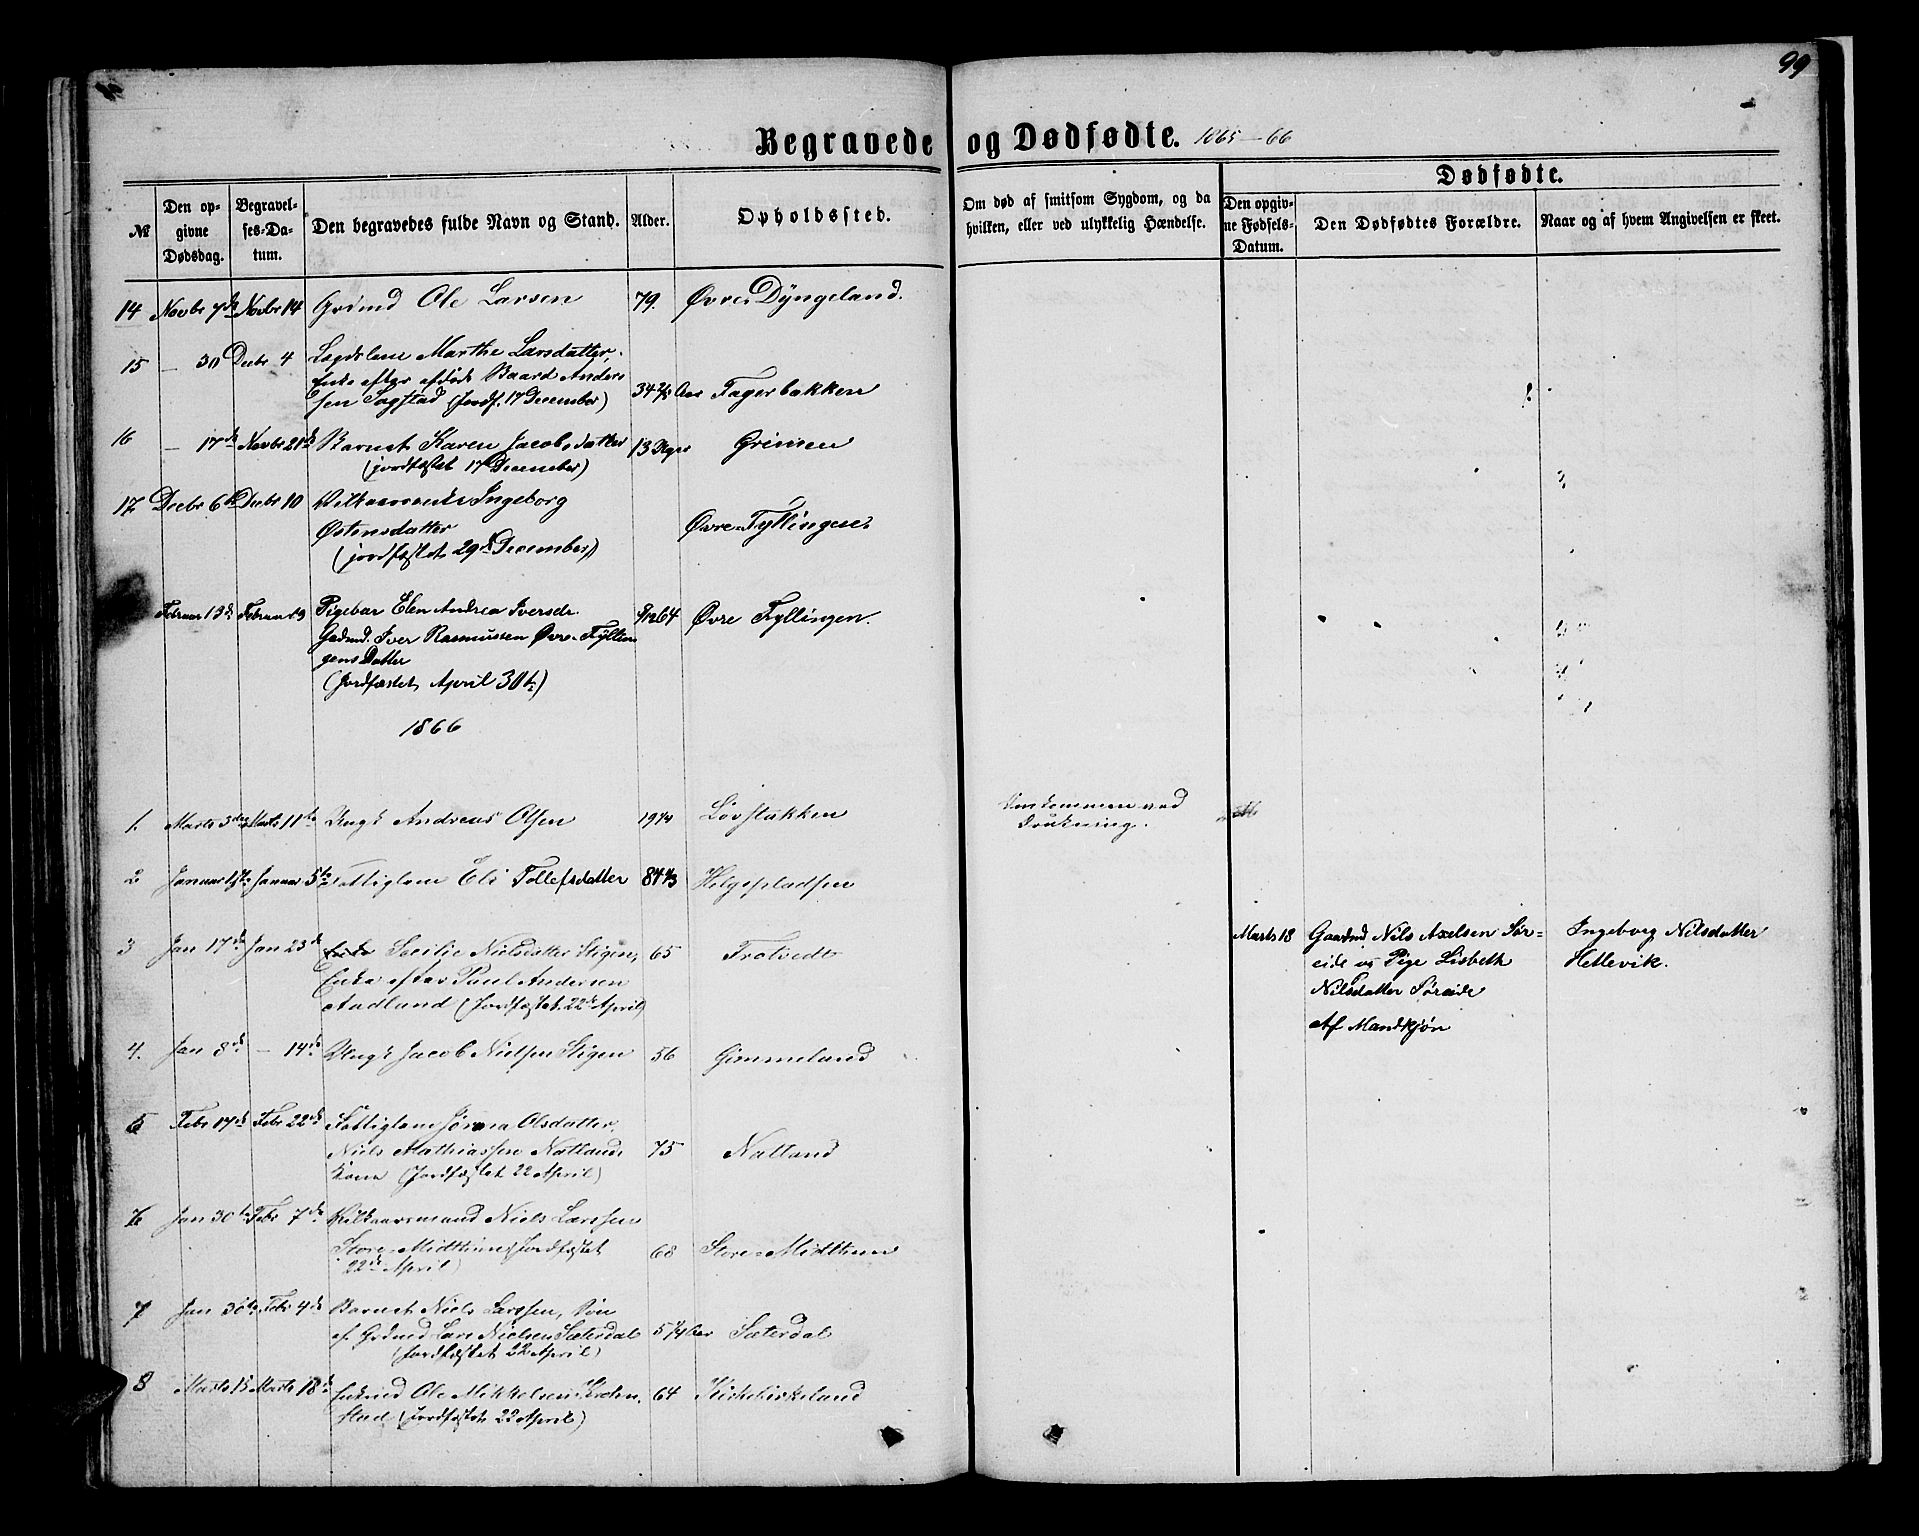 99
Begravede og Dødfødte. 1865-66
Dødfødte.
№
Den opgivne Dødsdag.
Begravelses-Datum.
Den begravedes fulde Navn og Stand.
Alder.
Opholdssted.
Om død af smitsom Sygdom, og da hvilken, eller ved ulykkelig Hændelse.
Den opgivne Fødsels-Datum.
Den Dødfødtes Forældre.
Naar og af hvem Angivelsen er skeet.
14 Novbr 7de Novbr 14 Grdmd Ole Larsen 79. Øvre Dyngeland.
15 — 30 Decbr 4 Lægdslem Marthe Larsdatter,
Enke efter afdøde Baard Ander
sen Sagstad (Jordf. 17 December) 34 Aar Fagerbakken
16 — 17de Novbr 21de Barnet Karen Jacobsdatter 13 Dage Grimen
(jordfæstet 17 December)
17 Decbr 6te Decbr 10 Ingeborg
Østensdatter Øvre-Fyllingen
(jordfæstet 29de December)
Februar 13de Februar 19 Pigebar Elen Andrea Iversdr. 9/12 64 Øvre Fyllingen.
Gadmd. Iver Rasmussen Øvre-Fyllin
gens Datter
(Jordfæstet April 30te)
1866
1. Marts 3die Marts 11te Ungk Andreas Olsen 19 Løvstakken Omkommen ved
Drukning.
2 Januar 1ste Januar 5te Fattiglem Eli Tollefsdatter 84 1/3 Helgepladsen
3 Jan 17de Jan 23de Enke Secilie Nielsdatter Stigen, 65 Trotvedt
Enke efter Paul Andersen
Aadland (Jordfæstet 22de April)
Marts 18 Gaardmd. Nils Axelsen Sør=
eide og Pige Lisbeth
Nilsdatter Søreide
Af Mandkjøn
Ingeborg Nilsdatter
Hetlevik.
4. Jan 8de — 14de Ungk Jacob Nielsen Stigen 56 Gimmeland
5 Febr 17de Febr 22de Fattiglem Olsdatter,
Niels Mathiassen Natlands 75 Natland
Kone (Jordfæstet 22 April)
6 Jan 30te Febr 7de Kilkaarsmand Niels Larssen
Store-Midthun (Jordfæstet 68 Store-Midthun
22de April)
7 Jan 30te Febr 4de Barnet Niels Larssen, Søn
af Grdmd Lars Nielsen Sæterdal 5 1/4 Aar Sæterdal
(Jordfæstet 22 April)
8 Marts 13 Marts 18de Enkmd Ole Mikkelsen 64 Kirkebirkeland
stad (Jordfæstet 22 April)